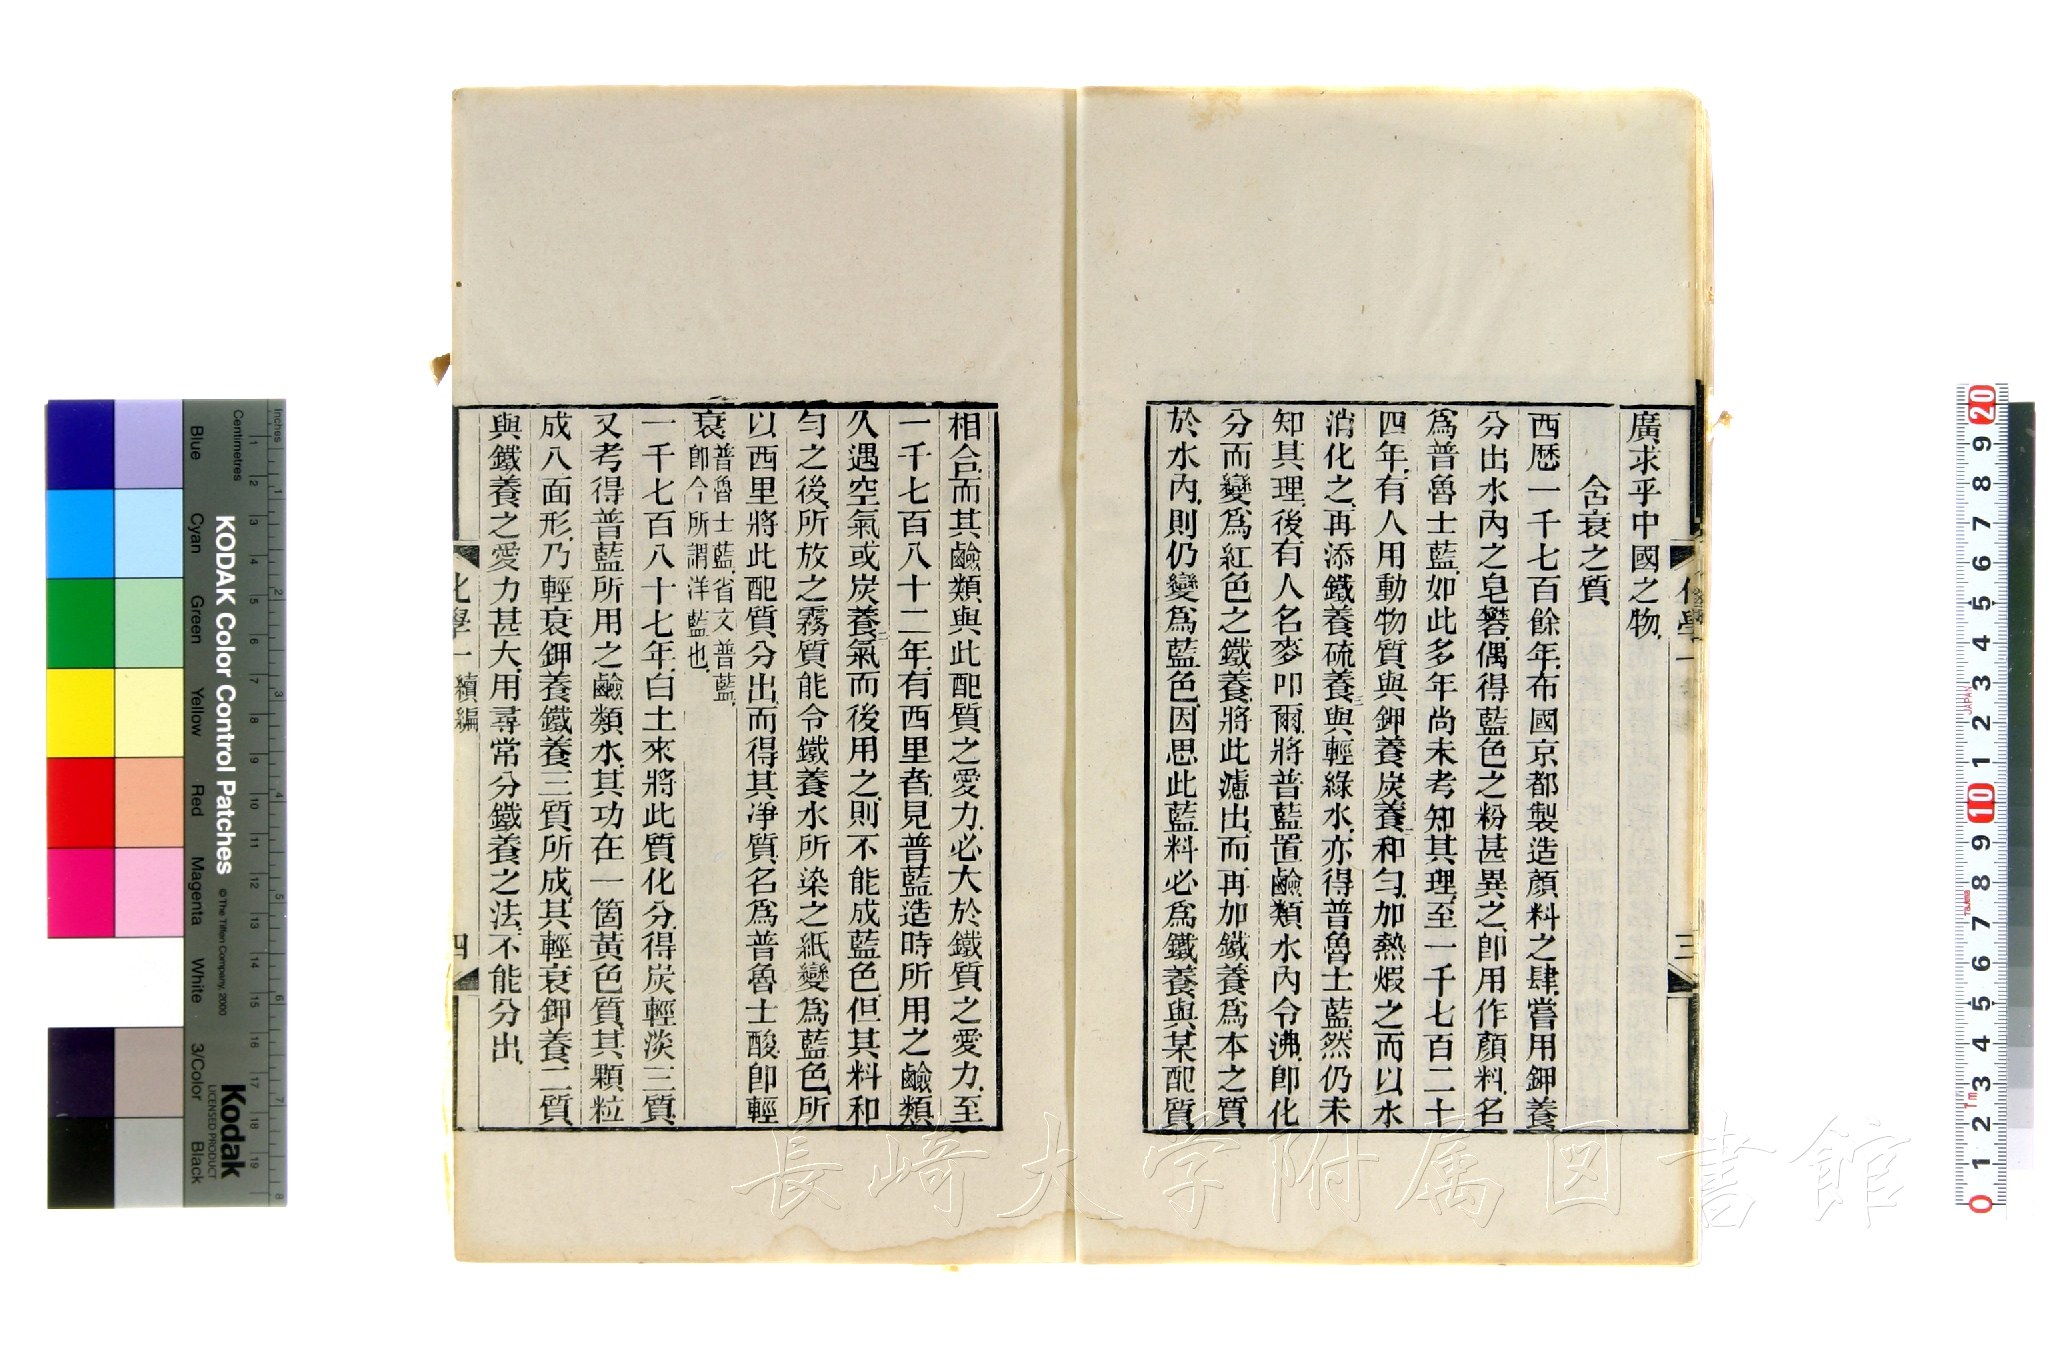 廣求乎中國之物.
含衰之質
西厯一千七百餘年.布國京都製造顏料之肆.嘗用鉀養
分出水內之皂礬.偶得藍色之粉甚異之.卽用作顏料.名
爲普魯士藍.如此多年尚未考知其理.至一千七百二十
四年.有人用動物質與鉀養炭養二和勻.加熱煆之而以水
消化之.再添鐵養硫養三與輕綠水.亦得普魯士藍.然仍未
知其理.後有人名麥叩爾.將普藍置鹼類水內令沸.卽化
分而變爲紅色之鐵養.將此濾出.而再加鐵養爲本之質
於水內.則仍變爲藍色.因思此藍料必爲鐵養與某配質
化學一
三
相合.而其鹼類與此配質之愛力.必大於鐵質之愛力.至
一千七百八十二年.有西里者.見普藍造時所用之鹼類.
久遇空氣或炭養二氣而後用之.則不能成藍色.但其料和
勻之後.所放之霧質能令鐵養水所染之紙變爲藍色.所
以西里將此配質分出.而得其淨質.名爲普魯士酸.卽輕
衰.普魯士藍.省文普藍.
卽今所謂洋藍也.
一千七百八十七年.白土來將此質化分.得炭輕淡三質.
又考得普藍所用之鹼類水.其功在一箇黃色質.其顆粒
成八面形.乃輕衰鉀養鐵養三質所成.其輕衰鉀養二質
與鐵養之愛力甚大.用尋常分鐵養之法.不能分出.
化學一 續編
四
長崎大学附属図書館
KODAK Color Control Patches
© The Tiffen Company, 2000
Kodak
LICENSED PRODUCT
Inches
Centimetres
Blue
Cyan
Green
Yellow
Red
Magenta
White
3/Color
Black
JAPAN
Tajima